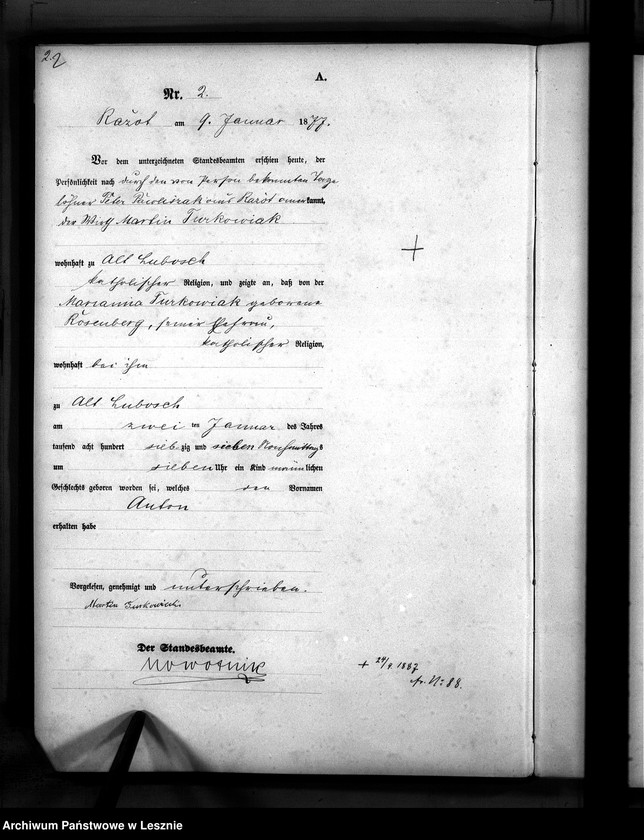 2.
A.
Nr. 2.
Ražot am 9. Januar 1877.
Vor dem unterzeichneten Standesbeamten erschien heute, der
Persönlichkeit nach durch den von Person bekannten Tage
löhner Peter aus Ražot anerkannt,
der Wirth Martin Turkowiak
wohnhaft zu Alt Lubosch
katholischer Religion, und zeigte an, daß von der
Marianna Turkowiak geborene
Rosenberg, seiner Ehefrau,
katholischer Religion,
wohnhaft bei ihm
zu Alt Lubosch
am zwei ten Januar des Jahres
tausend acht hundert siebzig und sieben Nachmittags
um sieben Uhr ein Kind männlichen
Geschlechts geboren worden sei, welches den Vornamen
Anton
erhalten habe
Vorgelesen, genehmigt und unterschrieben.
Martin Turkowiak.
Der Standesbeamte.
Nowotnik
+ 24/4 1887
Nr. 88.
Archiwum Państwowe w Lesznie